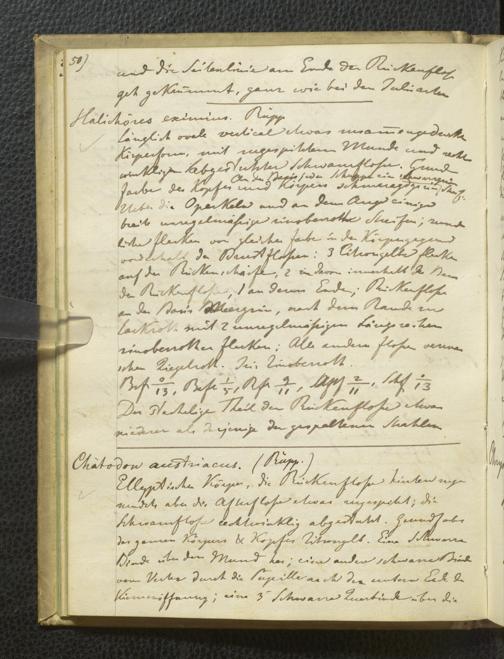 50)
und die Seitenlinie am Ende der Rückenflosse
geht gekrümmt, ganz wie bei den Julisarten
Halichöres eximius. Rüpp
Länglich ovale vertical etwas zusammengedrückte
Körperform, mit zugespitztem Munde und recht
winkliger abgestutzter Schwanzflosse. Grund
farbe des Kopfes und Körpers
Ueber die Operkeln und an dem Auge einige
breite unregelmäßige zinoberrothe Streifen; rund
liche Flecken von gleicher Farbe in der Körpergegend
vorderhalb der Brustflossen; 3 Citrongelbe Flecken
auf der Rückenschärfe, 2 in deren innerhalb der Basis
der Rückenflosse, 1 an deren Ende; Rückenflosse
an der Basis, nach dem Rande zu
lackroth mit 2 unregelmäßigen Längsreihen
zinoberrother Flecken; Alle andern Flossen verwa
schen Ziegelroth. Iris Zinoberroth.
Brf 0/13, Bauf 1/5, Rf 9/11, Aff 2/11, Schf 0/13
Der Stachelige Theil der Rückenflosse etwas
niederer als derjenige der gespaltenen Strahlen
Chätodon austriacus. (Rüpp.)
Elliptischer Körper, die Rückenflosse hinten zuge
rundet, aber die Afterflosse etwas zugespitzt; die
Schwanzflosse rechtwinklig abgestutzt. Grundfarbe
des ganzen Körpers & Kopfes Zitrongelb. Eine Schwarze
Binde über den Mund her; eine andere schwarze Binde
vom durch die Pupille nach dem untern Eck der
Kiemenöffnung; eine 3te Schwarze Querbinde über die